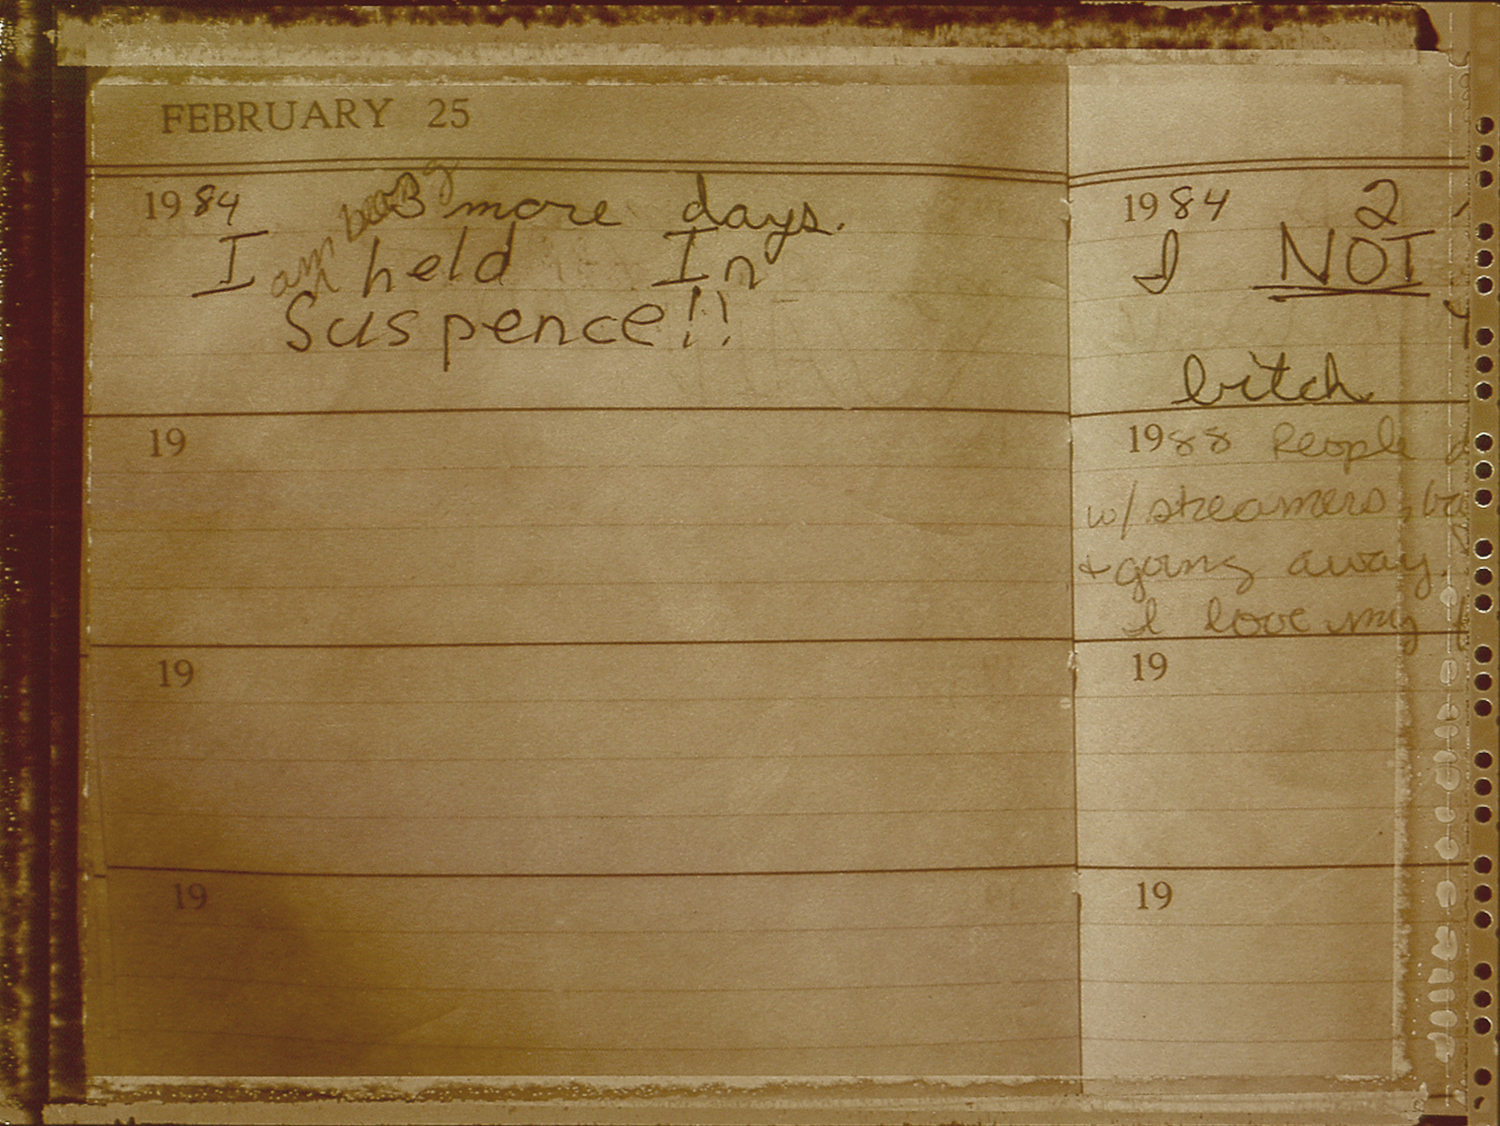 FEBRUARY 25
1984 3 more days.
I am being held In
Suspence!!
19
19
19
1984 2
I NOT
bitch
1988 People
w/streamers,
+ going away.
I love my
19
19